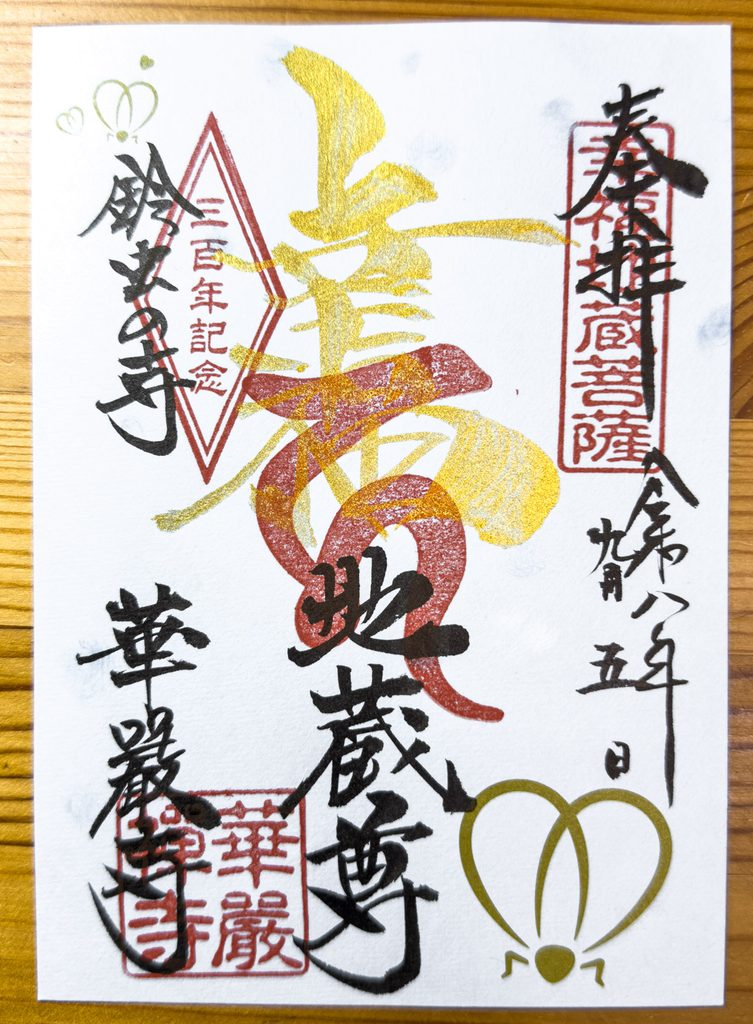 奉拝
幸福地蔵菩薩
令和八年
九月
五日
地蔵尊
三百年記念
鈴虫の寺
華嚴寺
華嚴
禪寺